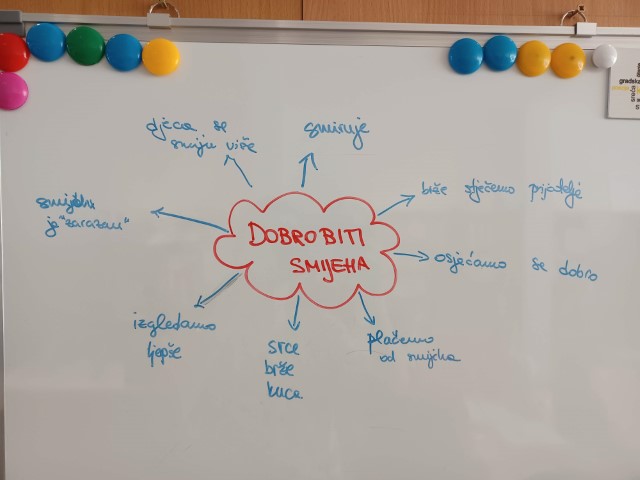 DOBROBITI
SMIJEHA
djeca se
smiju više
smiruje
brže stječemo prijatelje
osjećamo se dobro
plačemo
od smijeha
srce
brže
kuca
izgledamo
ljepše
smijeh
je "zarazan"
gradska